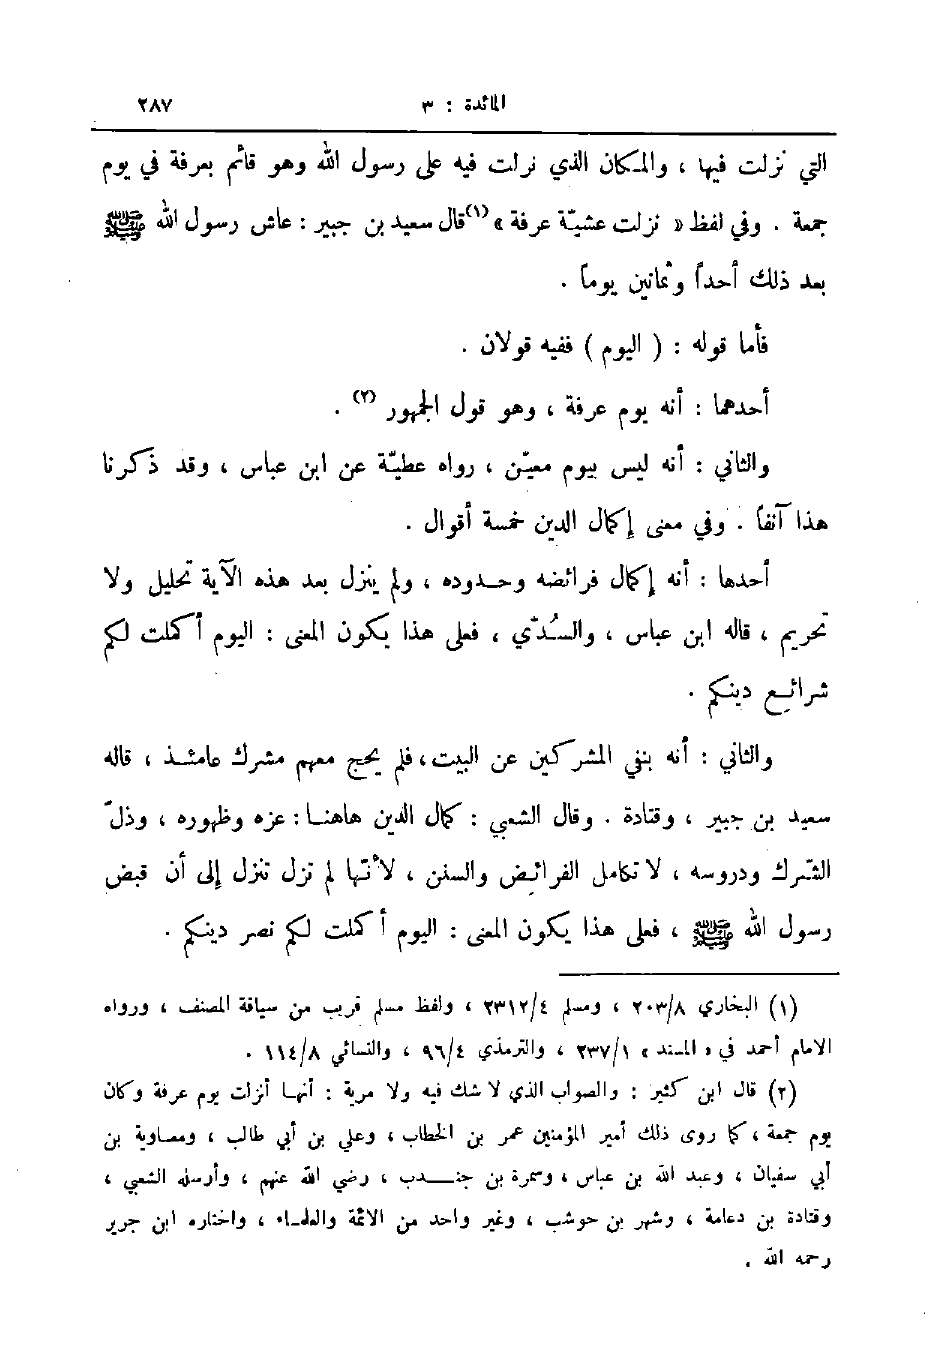 المائدة : ٣ ٢٨٧
التي نزلت فيها ، والمكان الذي نزلت فيه على رسول الله وهو قائم بعرفة في يوم
جمعة . وفي لفظ « نزلت عشيّة عرفة » (١) قال سعيد بن جبير : عاش رسول الله ﷺ
بعد ذلك أحداً وثمانين يوماً .
فأما قوله : ( اليوم ) ففيه قولان .
أحدهما : أنه يوم عرفة ، وهو قول الجمهور (٢) .
والثاني : أنه ليس بيوم معيّن ، رواه عطيّة عن ابن عباس ، وقد ذكرنا
هذا آنفاً . وفي معنى إكمال الدين خمسة أقوال .
أحدها : أنه إكمال فرائضه وحدوده ، ولم ينزل بعد هذه الآية تحليل ولا
تحريم ، قاله ابن عباس ، والسُدّي ، فعلى هذا يكون المعنى : اليوم أكملت لكم
شرائع دينكم .
والثاني : أنه بنفي المشركين عن البيت، فلم يحج معهم مشرك عامئذ ، قاله
سعيد بن جبير ، وقتادة . وقال الشعبي : كمال الدين هاهنا : عزه وظهوره ، وذلّ
الشرك ودروسه ، لا تكامل الفرائض والسنن ، لأنّها لم تزل تنزل إلى أن قبض
رسول الله ﷺ ، فعلى هذا يكون المعنى : اليوم أكملت لكم نصر دينكم .
(١) البخاري ٢٠٣/٨ ، ومسلم ٢٣١٢/٤ ، ولفظ مسلم قريب من سياقة المصنف ، ورواه
الامام أحمد في « المسند » ٢٣٧/١ ، والترمذي ٩٦/٤ ، والنسائي ١١٤/٨ .
(٢) قال ابن كثير : والصواب الذي لا شك فيه ولا مرية : أنها أنزلت يوم عرفة وكان
يوم جمعة ، كما روى ذلك أمير المؤمنين عمر بن الخطاب ، وعلي بن أبي طالب ، ومعاوية بن
أبي سفيان ، وعبد الله بن عباس ، وسمرة بن جندب ، رضي الله عنهم ، وأرسله الشعبي ،
وقتادة بن دعامة ، وشهر بن حوشب ، وغير واحد من الائمة والعلماء ، واختاره ابن جرير
رحمه الله .